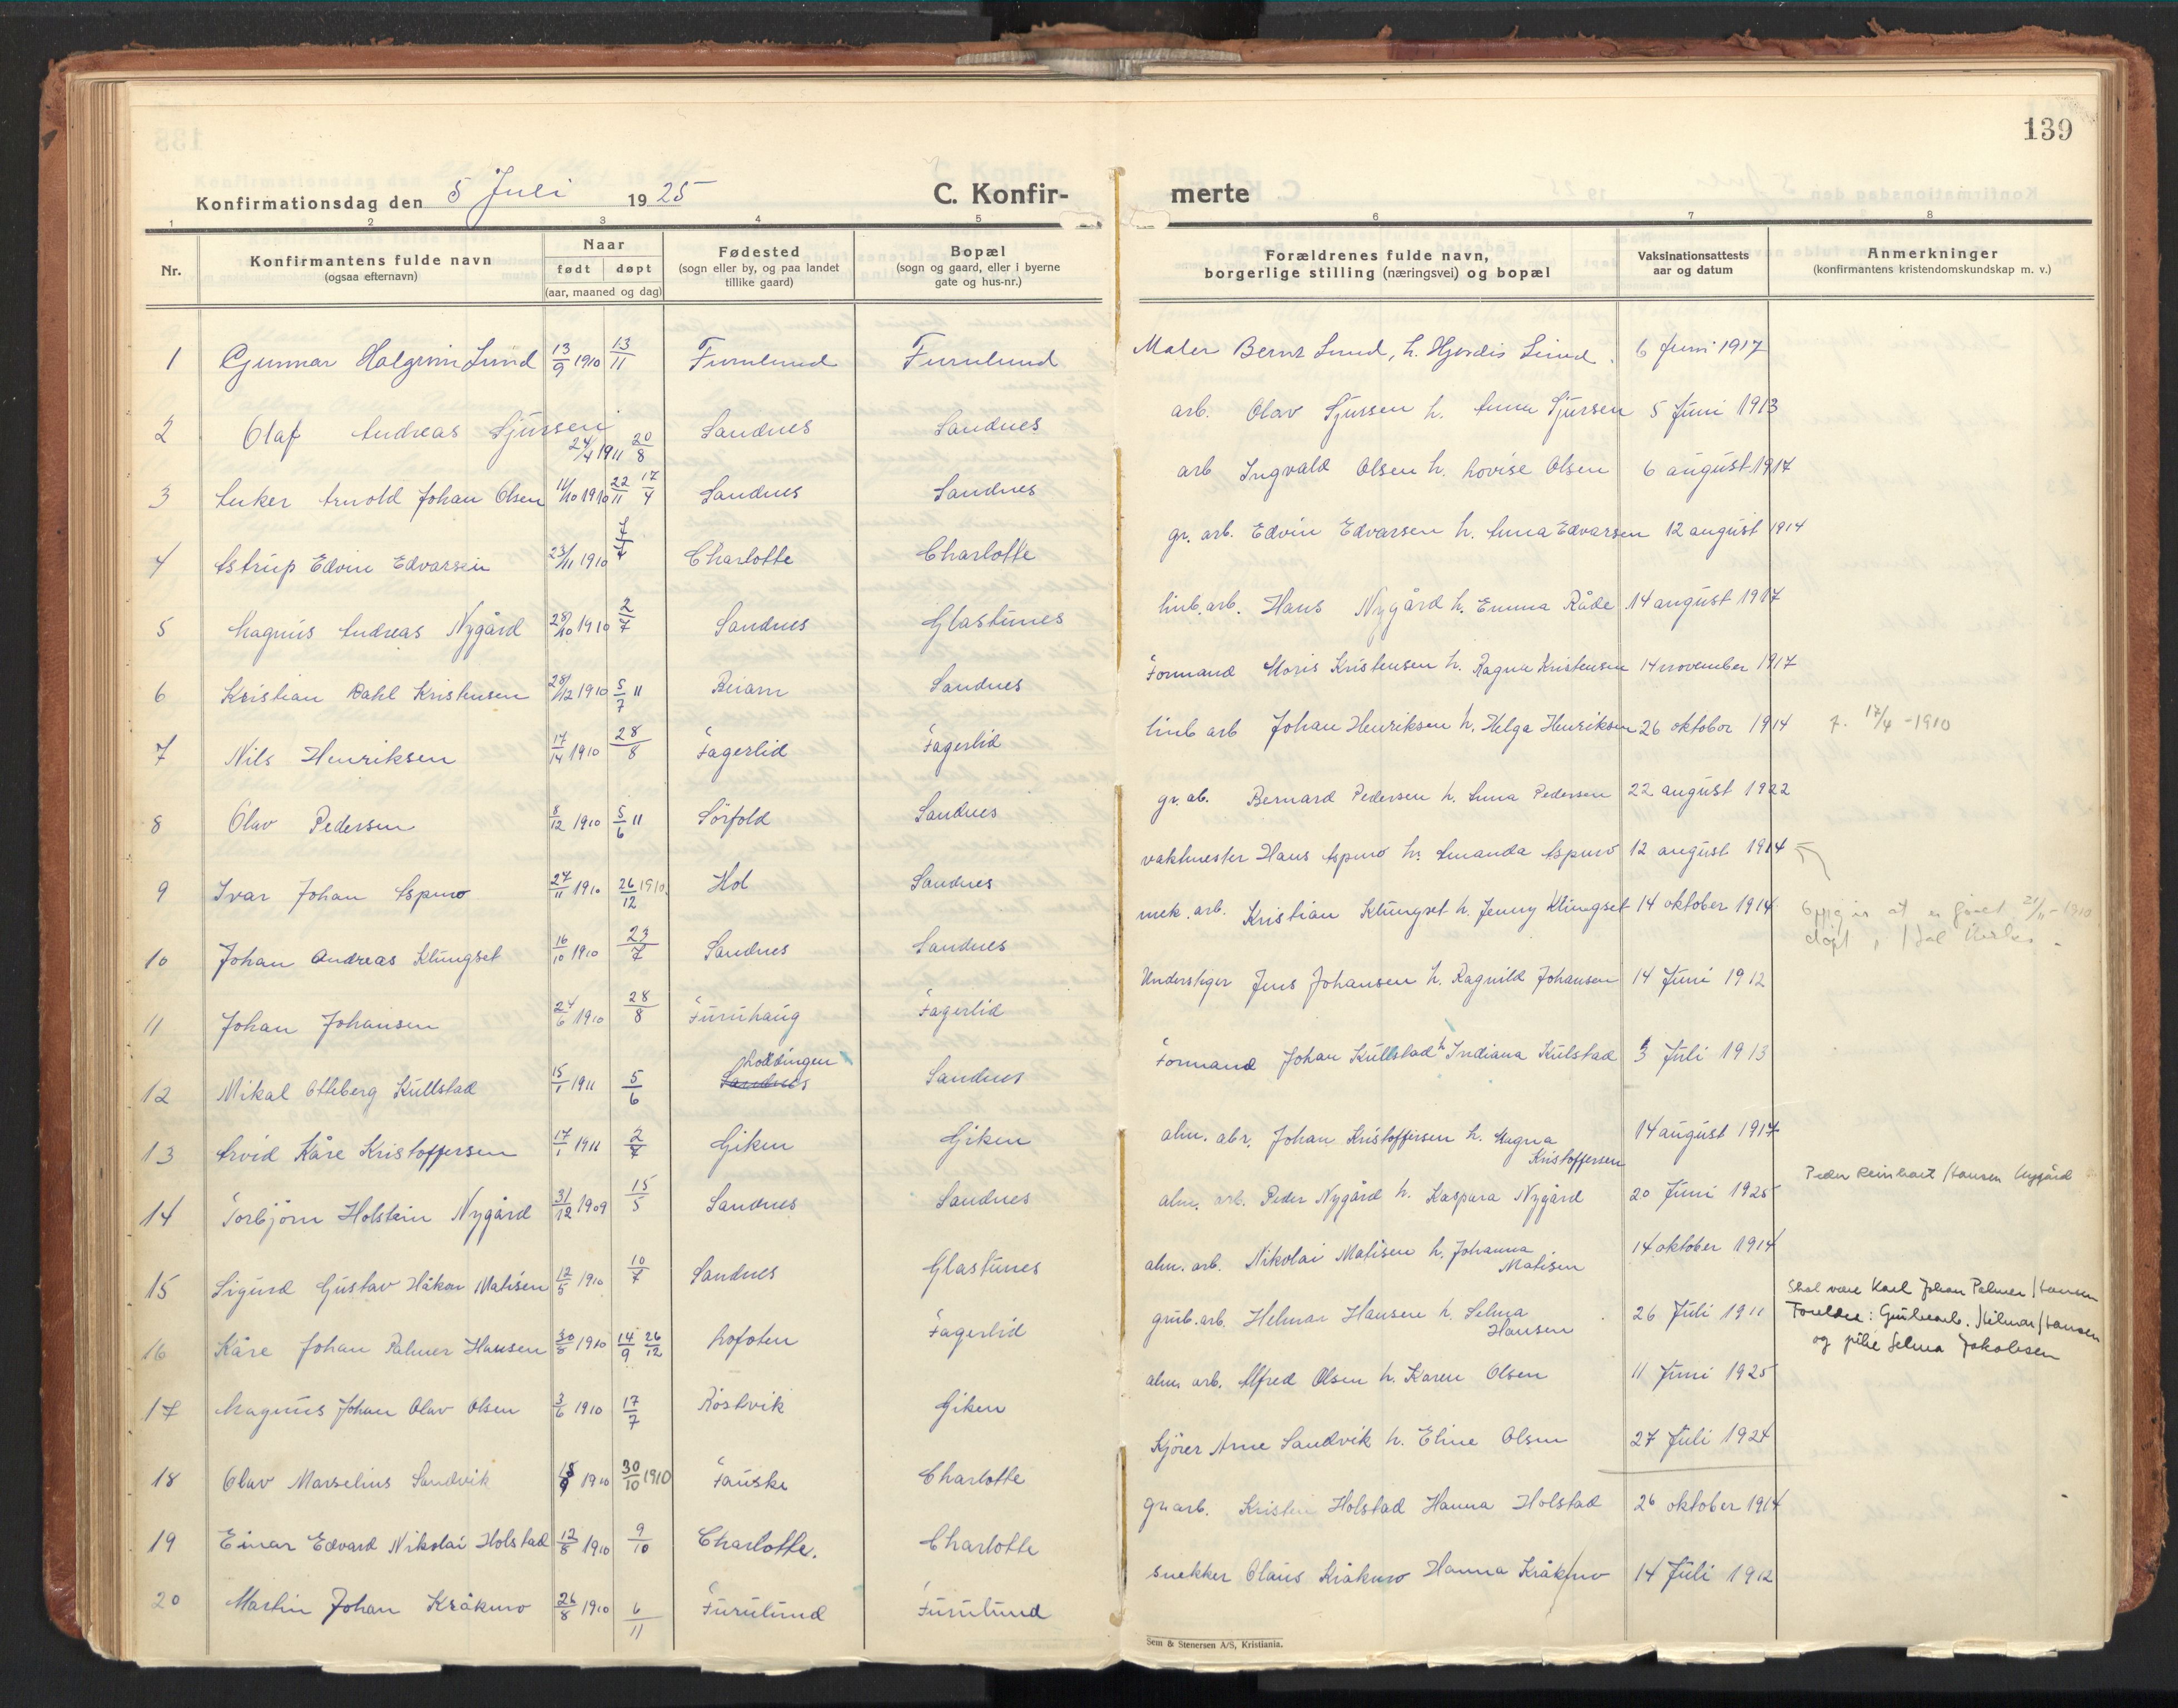 139
Konfirmationsdag den 5 Juli 1925
C. Konfirmerte
1 2 3 4 5 6 7 8
Nr.
Konfirmantens fulde navn
(ogsaa efternavn)
Naar
født døpt
(aar, maaned og dag)
Fødested
(sogn eller by, og paa landet
tillike gaard)
Bopæl
(sogn og gaard, eller i byerne
gate og hus-nr.)
Forældrenes fulde navn,
borgerlige stilling (næringsvei) og bopæl
Vaksinationsattests
aar og datum
Anmerkninger
(konfirmantens kristendomskundskap m. v.)
1 Gunnar Halgrim Lund 13/9 1910 13/11 Furulund Furulund Maler Bernt Lund, h. Hjørdis Lund. 6 Juni 1917
2 Olaf Andreas Sjursen 24/4 1911 20/8 Sandnes Sandnes arb. Olav Sjursen h. Anna Sjursen 5 Juni 1913
3 Anker Arnold Johan Olsen 11/10 1910 22/11 17/4 Sandnes Sandnes arb Ingvald Olsen h. Lovise Olsen 6 august 1917
4 Astrup Edvin Edvarsen 23/11 1910 7/4 Charlotte Charlotte gr. arb. Edvin Edvarsen h. Anna Edvarsen 12 august 1914
5 Magnus Andreas Nygård 28/10 1910 2/7 Sandnes Glastunes linb. arb. Hans Nygård h. Emma Råde 14 august 1917
6 Kristian Dahl Kristensen 28/12 1910 5/7 11 Beiarn Sandnes Formand Moris Kristensen h. Ragna Kristensen 14 november 1917
7 Nils Henriksen 17/14 1910 28/8 Fagerlid Fagerlid linb arb Johan Henriksen h. Helga Henriksen 26 oktobor 1914 f. 17/4 - 1910
8 Olav Pedersen 8/12 1910 5/6 11 Sörfold Sandnes gr. ab. Bernard Pedersen h. Anna Pedersen 22 august 1922
9 Ivar Johan Aspmo 27/11 1910 26/12 1910 Hol Sandnes vaktmester Hans Aspmo h. Amanda Aspmo 12 august 1914
10 Johan Andreas Klungset 16/10 1910 23/7 Sandnes Sandnes mek. arb. Kristian Klungset h. Jenny Klungset 14 oktober 1914 at er født 21/11 - 1910
døpt i Hol
11 Johan Johansen 24/6 1910 28/8 Furuhaug Fagerlid Understiger Jens Johansen h. Ragnild Johansen 14 Juni 1912
12 Mikal Otteberg Kullstad 15/1 1911 5/6 Sandnes Loddingen Sandnes Formand Johan Kullstad h Indiana Kulstad 3 Juli 1913
13 Arvid Kåre Kristoffersen 17/1 1911 2/7 Giken Giken alm. abr. Johan Kristoffersen h. Magna
Kristoffersen 14 august 1917
14 Torbjörn Holstein Nygård 31/12 1909 15/5 Sandnes Sandnes alm. arb. Peder Nygård h. Kaspara Nygård 20 Juni 1925 Peder Reinhart Hansen Nygård
15 Sigurd Gustav Håkon Matisen 12/5 1910 10/7 Sandnes Glastunes alm. arb. Nikolai Matisen h. Johanna
Matisen 14 oktober 1914
16 Kåre Johan Palmer Hansen 30/8 1910 14/9 26/12 Lofoten Fagerlid grub. arb. Helmar Hansen h. Selma
Hansen 26 Juli 1911 Skal være Karl Johan Palmer Hansen
Foreldre: Grubearb. Hilmar Hansen
og pike Selma Jakobsen
17 Magnus Johan Olav Olsen 3/6 1910 17/7 Röstvik Giken alm. arb. Alfred Olsen h. Karen Olsen 11 Juni 1925
18 Olav Marselius Sandvik 1910 30/10 1910 Fauske Charlotte Kjörer Arne Sandvik h. Eline Olsen 27 Juli 1924
19 Einar Edvard Nikolai Holstad 12/8 1910 9/10 Charlotte. Charlotte gr. arb. Kristen Holstad Hanna Holstad 26 oktober 1914
20 Martin Johan Kråkmo 26/8 1910 6/11 Furulund Furulund snekker Olaus Kråkmo Hanna Kråkmo 14 Juli 1912
Sem & Stenersen A/S, Kristiania.